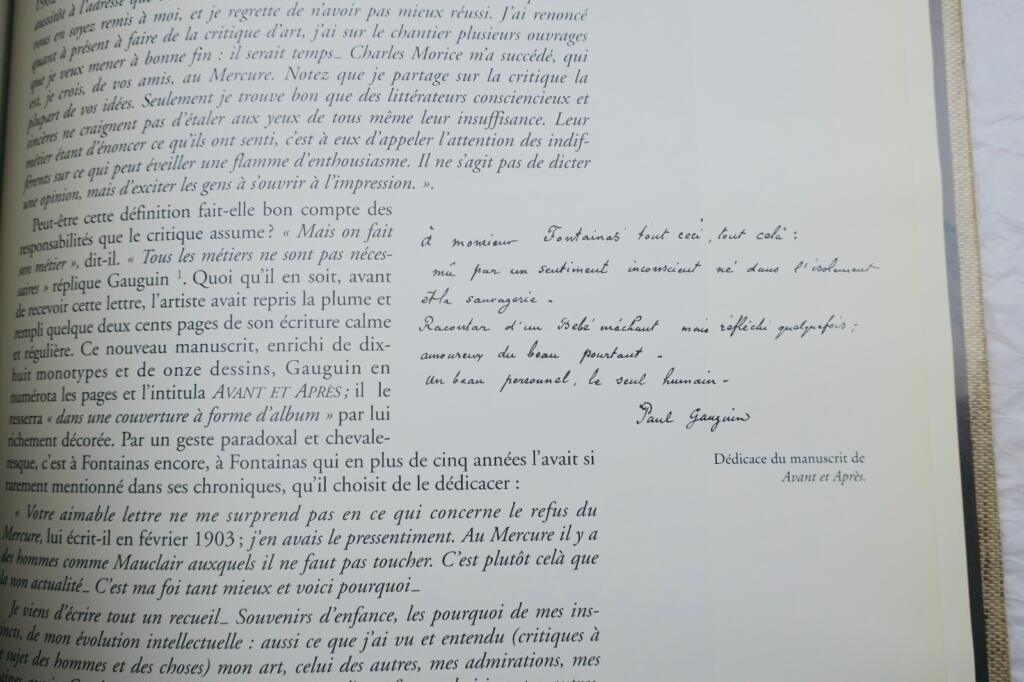 aussitôt à l'adresse que
vous en soyez remis à moi, et je regrette de n'avoir pas mieux réussi. J'ai renoncé
quant à présent à faire de la critique d'art, j'ai sur le chantier plusieurs ouvrages
que je veux mener à bonne fin : il serait temps_ Charles Morice m'a succédé, qui
est, je crois, de vos amis, au Mercure. Notez que je partage sur la critique la
plupart de vos idées. Seulement je trouve bon que des littérateurs consciencieux et
sincères ne craignent pas d'étaler aux yeux de tous même leur insuffisance. Leur
métier étant d'énoncer ce qu'ils ont senti, c'est à eux d'appeler l'attention des indif-
férents sur ce qui peut éveiller une flamme d'enthousiasme. Il ne s'agit pas de dicter
une opinion, mais d'exciter les gens à s'ouvrir à l'impression. ».
Peut-être cette définition fait-elle bon compte des
responsabilités que le critique assume ? « Mais on fait
son métier », dit-il. « Tous les métiers ne sont pas néces-
saires » réplique Gauguin 1. Quoi qu'il en soit, avant
de recevoir cette lettre, l'artiste avait repris la plume et
rempli quelque deux cents pages de son écriture calme
et régulière. Ce nouveau manuscrit, enrichi de dix-
huit monotypes et de onze dessins, Gauguin en
numérota les pages et l'intitula AVANT ET APRÈS ; il le
resserra « dans une couverture à forme d'album » par lui
richement décorée. Par un geste paradoxal et chevale-
resque, c'est à Fontainas encore, à Fontainas qui en plus de cinq années l'avait si
rarement mentionné dans ses chroniques, qu'il choisit de le dédicacer :
« Votre aimable lettre ne me surprend pas en ce qui concerne le refus du
Mercure, lui écrit-il en février 1903 ; j'en avais le pressentiment. Au Mercure il y a
des hommes comme Mauclair auxquels il ne faut pas toucher. C'est plutôt celà que
la non actualité_ C'est ma foi tant mieux et voici pourquoi_
Je viens d'écrire tout un recueil_ Souvenirs d'enfance, les pourquoi de mes ins-
tincts, de mon évolution intellectuelle : aussi ce que j'ai vu et entendu (critiques à
sujet des hommes et des choses) mon art, celui des autres, mes admirations, mes
à monsieur Fontainas tout ceci, tout celà :
mû par un sentiment inconscient né dans l'isolement
et la sauvagerie -
Racontar d'un Bébé méchant mais réfléchi quelquefois ;
amoureux du beau pourtant -
Un beau personnel, le seul humain -
Paul Gauguin
Dédicace du manuscrit de
Avant et Après.